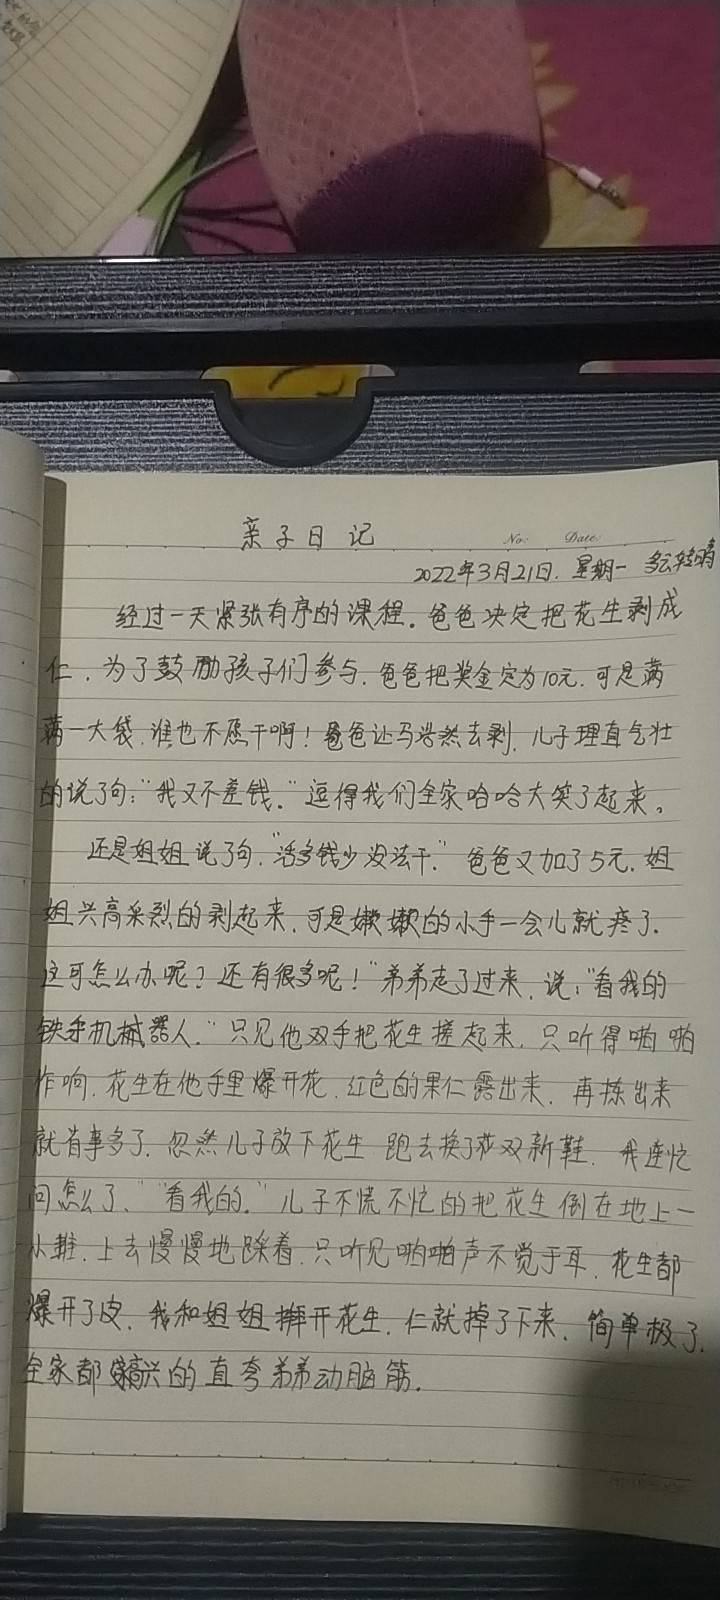 亲子日记
No: Date:
2022年3月21日. 星期一 多云转晴
经过一天紧张有序的课程。爸爸决定把花生剥成
仁，为了鼓励孩子们参与，爸爸把奖金定为10元，可是满
满一大袋，谁也不愿干啊！爸爸让马浩然去剥，儿子理直气壮
的说了句："我又不差钱。"逗得我们全家哈哈大笑了起来。
还是姐姐说了句，"活多钱少没法干."爸爸又加了5元，姐
姐兴高采烈的剥起来，可是嫩嫩的小手一会儿就疼了.
这可怎么办呢？还有很多呢！"弟弟走了过来，说："看我的
铁手机械器人."只见他双手把花生搓起来，只听得啪啪
作响，花生在他手里爆开花，红色的果仁露出来，再拣出来
就省事多了，忽然儿子放下花生 跑去换了双新鞋，我连忙
问怎么了、""看我的."儿子不慌不忙的把花生倒在地上一
小堆，上去慢慢地踩着，只听见啪啪声不觉于耳，花生都
爆开了皮，我和姐姐掰开花生，仁就掉了下来，简单极了.
全家都高兴的直夸弟弟动脑筋.